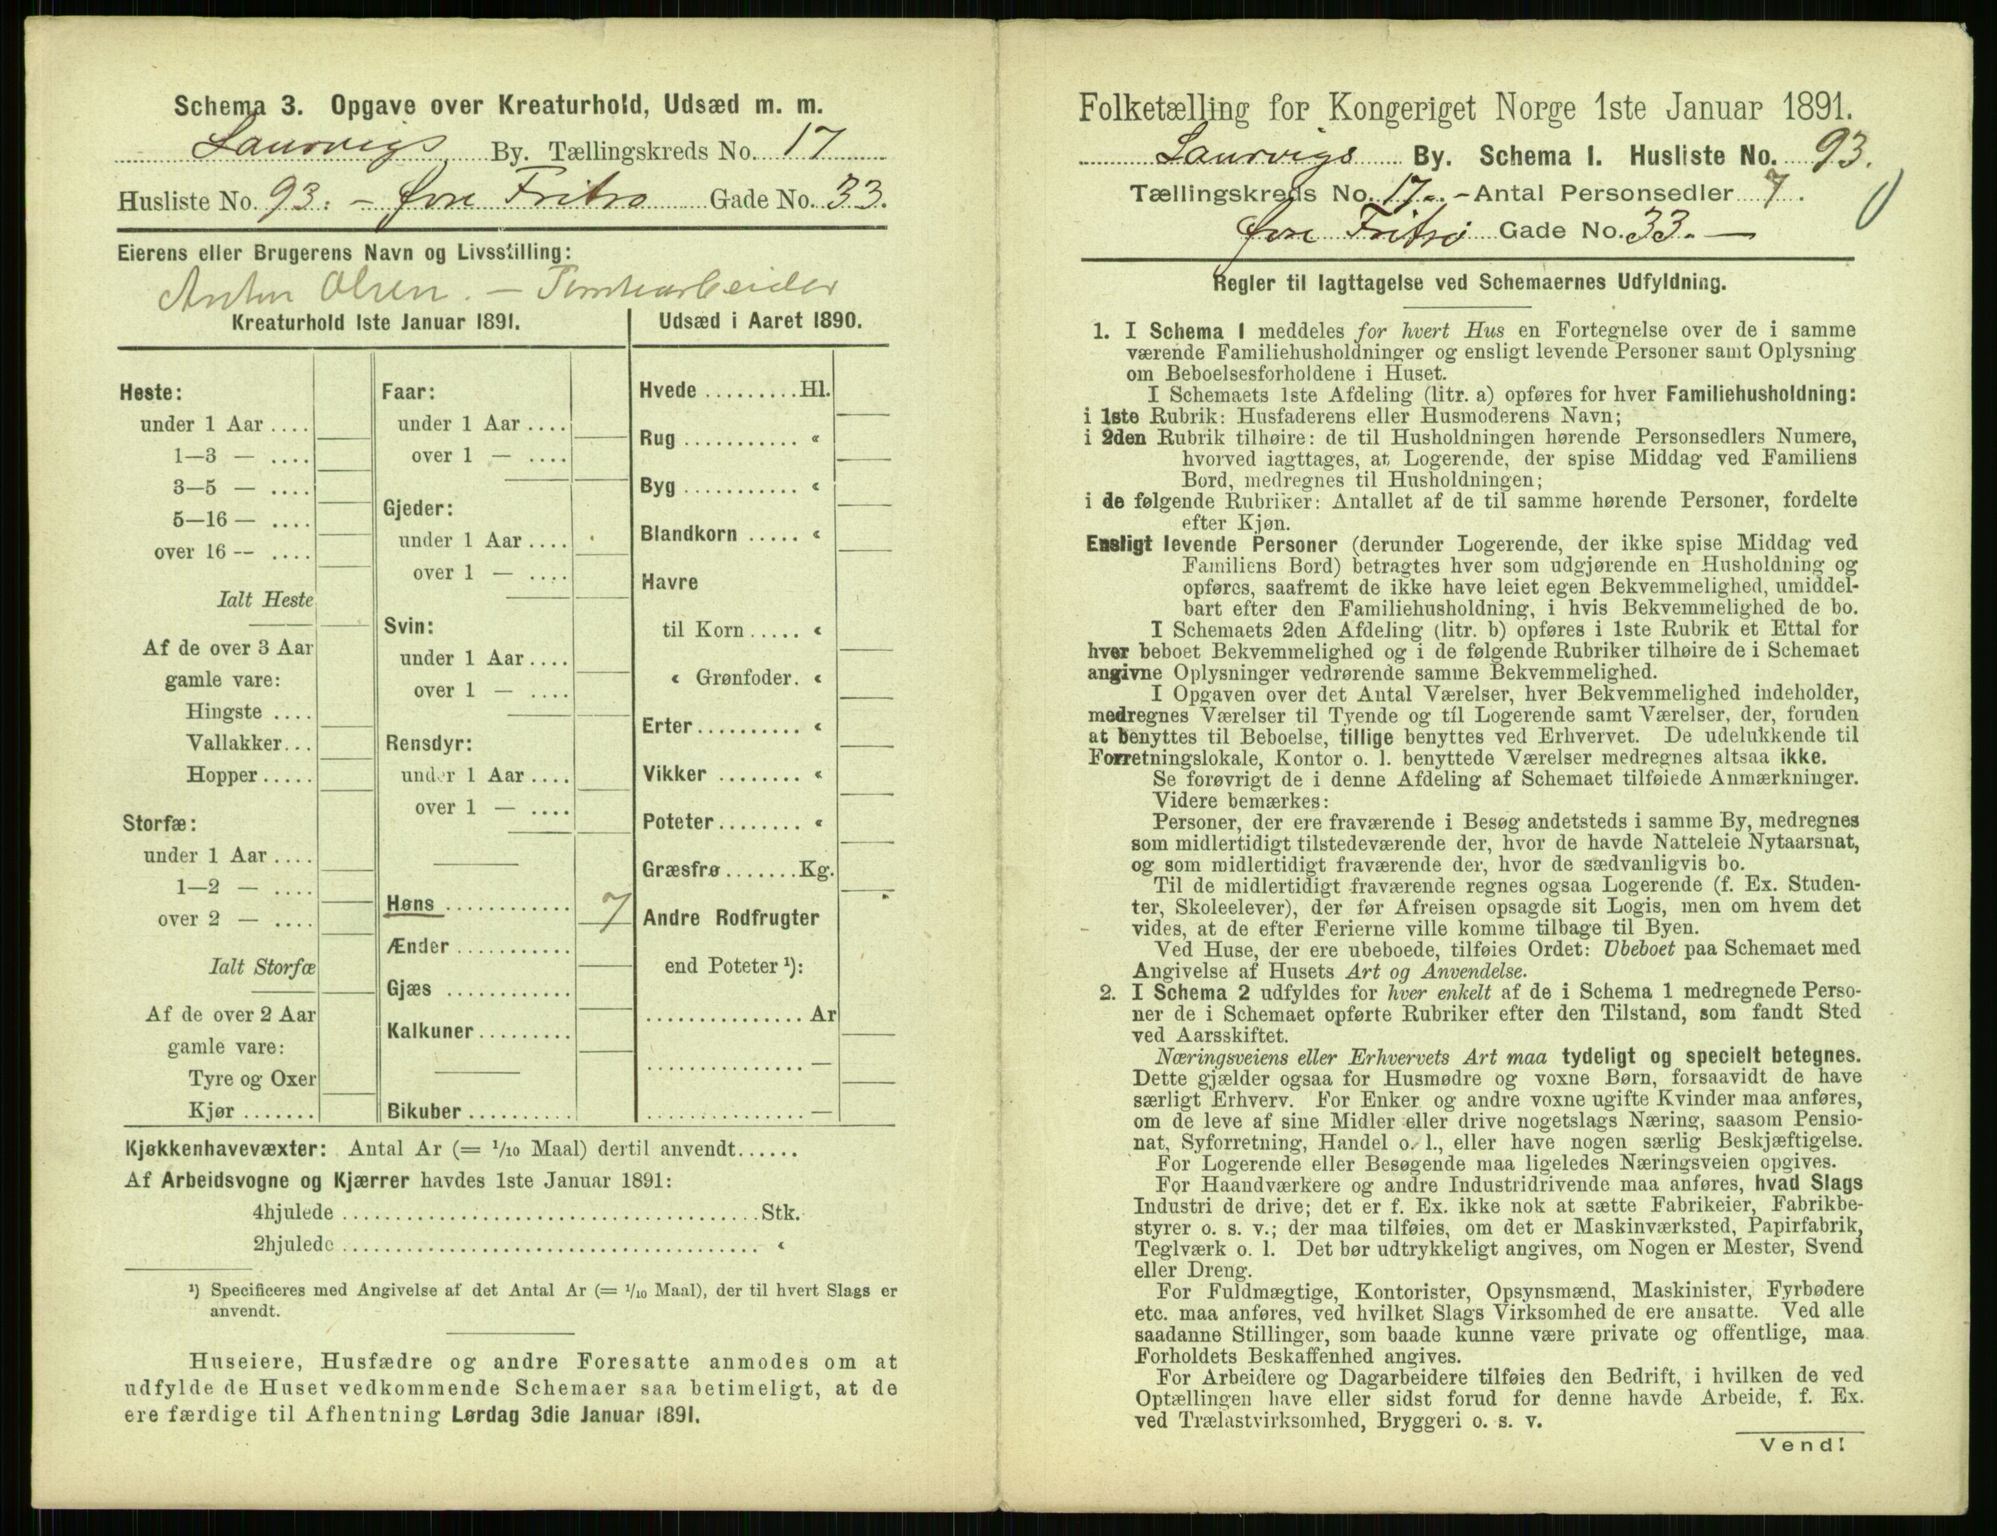 Schema 3. Opgave over Kreaturhold, Udsæd m. m.
Laurvigs By. Tællingskreds No. 17
Husliste No. 93. – Øvre Fritzø Gade No. 33.
Eierens eller Brugerens Navn og Livsstilling:
Anton Olsen. – Tomtearbeider
Kreaturhold 1ste Januar 1891.
Heste:
under 1 Aar ....
1—3 — ....
3—5 — ....
5—16 — ....
over 16 -- ....
Ialt Heste
Af de over 3 Aar
gamle vare:
Hingste ....
Vallakker...
Hopper .....
Storfæ:
under 1 Aar ....
1—2 — ....
over 2 — ....
Ialt Storfæ
Af de over 2 Aar
gamle vare:
Tyre og Oxer
Kjør .......
Faar:
under 1 Aar ....
over 1 — ....
Gjeder:
under 1 Aar ....
over 1 — ....
Svin:
under 1 Aar ....
over 1 — ....
Rensdyr:
under 1 Aar ....
over 1 — ....
Høns ............ 7
Ænder ...........
Gjæs ............
Kalkuner.........
Bikuber ..........
Udsæd i Aaret 1890.
Hvede .........Hl.
Rug ........... «
Byg ........... «
Blandkorn ..... «
Havre
til Korn ..... «
« Grønfoder. «
Erter .......... «
Vikker ........ «
Poteter........ «
Græsfrø .......Kg.
Andre Rodfrugter
end Poteter ¹):
............... Ar
............... —
............... —
Kjøkkenhavevæxter: Antal Ar (= 1/10 Maal) dertil anvendt......
Af Arbeidsvogne og Kjærrer havdes 1ste Januar 1891:
4hjulede ........................................Stk.
2hjulede ........................................ «
¹) Specificeres med Angivelse af det Antal Ar (= 1/10 Maal), der til hvert Slags er
anvendt.
Huseiere, Husfædre og andre Foresatte anmodes om at
udfylde de Huset vedkommende Schemaer saa betimeligt, at de
ere færdige til Afhentning Lørdag 3die Januar 1891.
Folketælling for Kongeriget Norge 1ste Januar 1891.
Laurvigs By. Schema 1. Husliste No. 93.
Tællingskreds No. 17. – Antal Personsedler 7.
Øvre Fritzø Gade No. 33. –
Regler til Iagttagelse ved Schemaernes Udfyldning.
1. I Schema 1 meddeles for hvert Hus en Fortegnelse over de i samme
værende Familiehusholdninger og ensligt levende Personer samt Oplysning
om Beboelsesforholdene i Huset.
I Schemaets 1ste Afdeling (litr. a) opføres for hver Familiehusholdning:
i 1ste Rubrik: Husfaderens eller Husmoderens Navn;
i 2den Rubrik tilhøire: de til Husholdningen hørende Personsedlers Numere,
hvorved iagttages, at Logerende, der spise Middag ved Familiens
Bord, medregnes til Husholdningen;
i de følgende Rubriker: Antallet af de til samme hørende Personer, fordelte
efter Kjøn.
Ensligt levende Personer (derunder Logerende, der ikke spise Middag ved
Familiens Bord) betragtes hver som udgjørende en Husholdning og
opføres, saafremt de ikke have leiet egen Bekvemmelighed, umiddel-
bart efter den Familiehusholdning, i hvis Bekvemmelighed de bo.
I Schemaets 2den Afdeling (litr. b) opføres i 1ste Rubrik et Ettal for
hver beboet Bekvemmelighed og i de følgende Rubriker tilhøire de i Schemaet
angivne Oplysninger vedrørende samme Bekvemmelighed.
I Opgaven over det Antal Værelser, hver Bekvemmelighed indeholder,
medregnes Værelser til Tyende og til Logerende samt Værelser, der, foruden
at benyttes til Beboelse, tillige benyttes ved Erhvervet. De udelukkende til
Forretningslokale, Kontor o. l. benyttede Værelser medregnes altsaa ikke.
Se forøvrigt de i denne Afdeling af Schemaet tilføiede Anmærkninger.
Videre bemærkes:
Personer, der ere fraværende i Besøg andetsteds i samme By, medregnes
som midlertidigt tilstedeværende der, hvor de havde Natteleie Nytaarsnat,
og som midlertidigt fraværende der, hvor de sædvanligvis bo.
Til de midlertidigt fraværende regnes ogsaa Logerende (f. Ex. Studen-
ter, Skoleelever), der før Afreisen opsagde sit Logis, men om hvem det
vides, at de efter Ferierne ville komme tilbage til Byen.
Ved Huse, der ere ubeboede, tilføies Ordet: Ubeboet paa Schemaet med
Angivelse af Husets Art og Anvendelse.
2. I Schema 2 udfyldes for hver enkelt af de i Schema 1 medregnede Perso-
ner de i Schemaet opførte Rubriker efter den Tilstand, som fandt Sted
ved Aarsskiftet.
Næringsveiens eller Erhvervets Art maa tydeligt og specielt betegnes.
Dette gjælder ogsaa for Husmødre og voxne Børn, forsaavidt de have
særligt Erhverv. For Enker og andre voxne ugifte Kvinder maa anføres,
om de leve af sine Midler eller drive nogetslags Næring, saasom Pensio-
nat, Syforretning, Handel o. l., eller have nogen særlig Beskjæftigelse.
For Logerende eller Besøgende maa ligeledes Næringsveien opgives.
For Haandværkere og andre Industridrivende maa anføres, hvad Slags
Industri de drive; det er f. Ex. ikke nok at sætte Fabrikeier, Fabrikbe-
styrer o. s. v.; der maa tilføies, om det er Maskinværksted, Papirfabrik,
Teglværk o. l. Det bør udtrykkeligt angives, om Nogen er Mester, Svend
eller Dreng.
For Fuldmægtige, Kontorister, Opsynsmænd, Maskinister, Fyrbødere
etc. maa anføres, ved hvilket Slags Virksomhed de ere ansatte. Ved alle
saadanne Stillinger, som baade kunne være private og offentlige, maa
Forholdets Beskaffenhed angives.
For Arbeidere og Dagarbeidere tilføies den Bedrift, i hvilken de ved
Optællingen have eller sidst forud for denne havde Arbeide, f. Ex.
ved Trælastvirksomhed, Bryggeri o. s. v.
Vend!